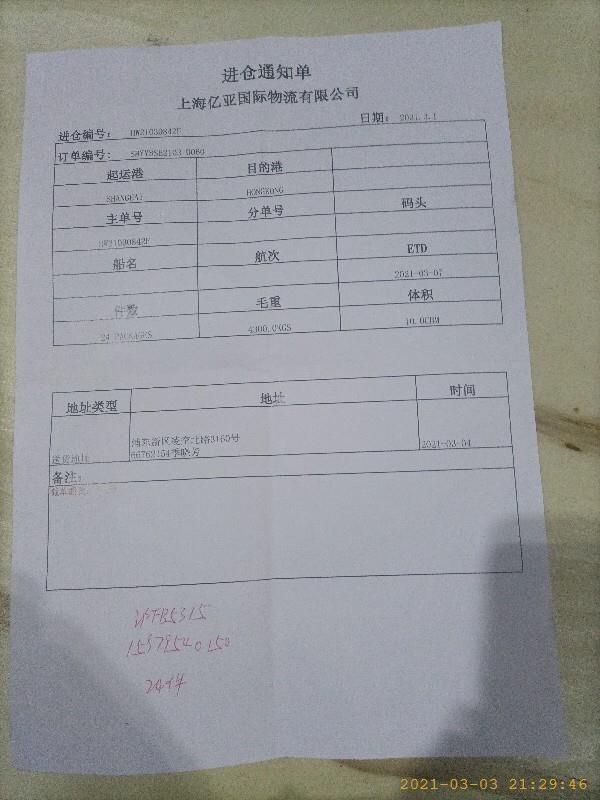 进仓通知单
上海亿亚国际物流有限公司
日期： 2021.3.1
进仓编号： HW21030842F
订单编号： SHYYHSE2103 0060
起运港 目的港
SHANGHAI HONGKONG
主单号 分单号 码头
HW21030842F
船名 航次 ETD
2021-03-07
件数 毛重 体积
24 PACKAGES 4300.0KGS 10.0CBM
地址类型 地址 时间
浦东新区凌空北路3160号
送货地址 66762154季晓芳 2021-03-04
备注：
沪FB5315
24件
2021-03-03 21:29:46